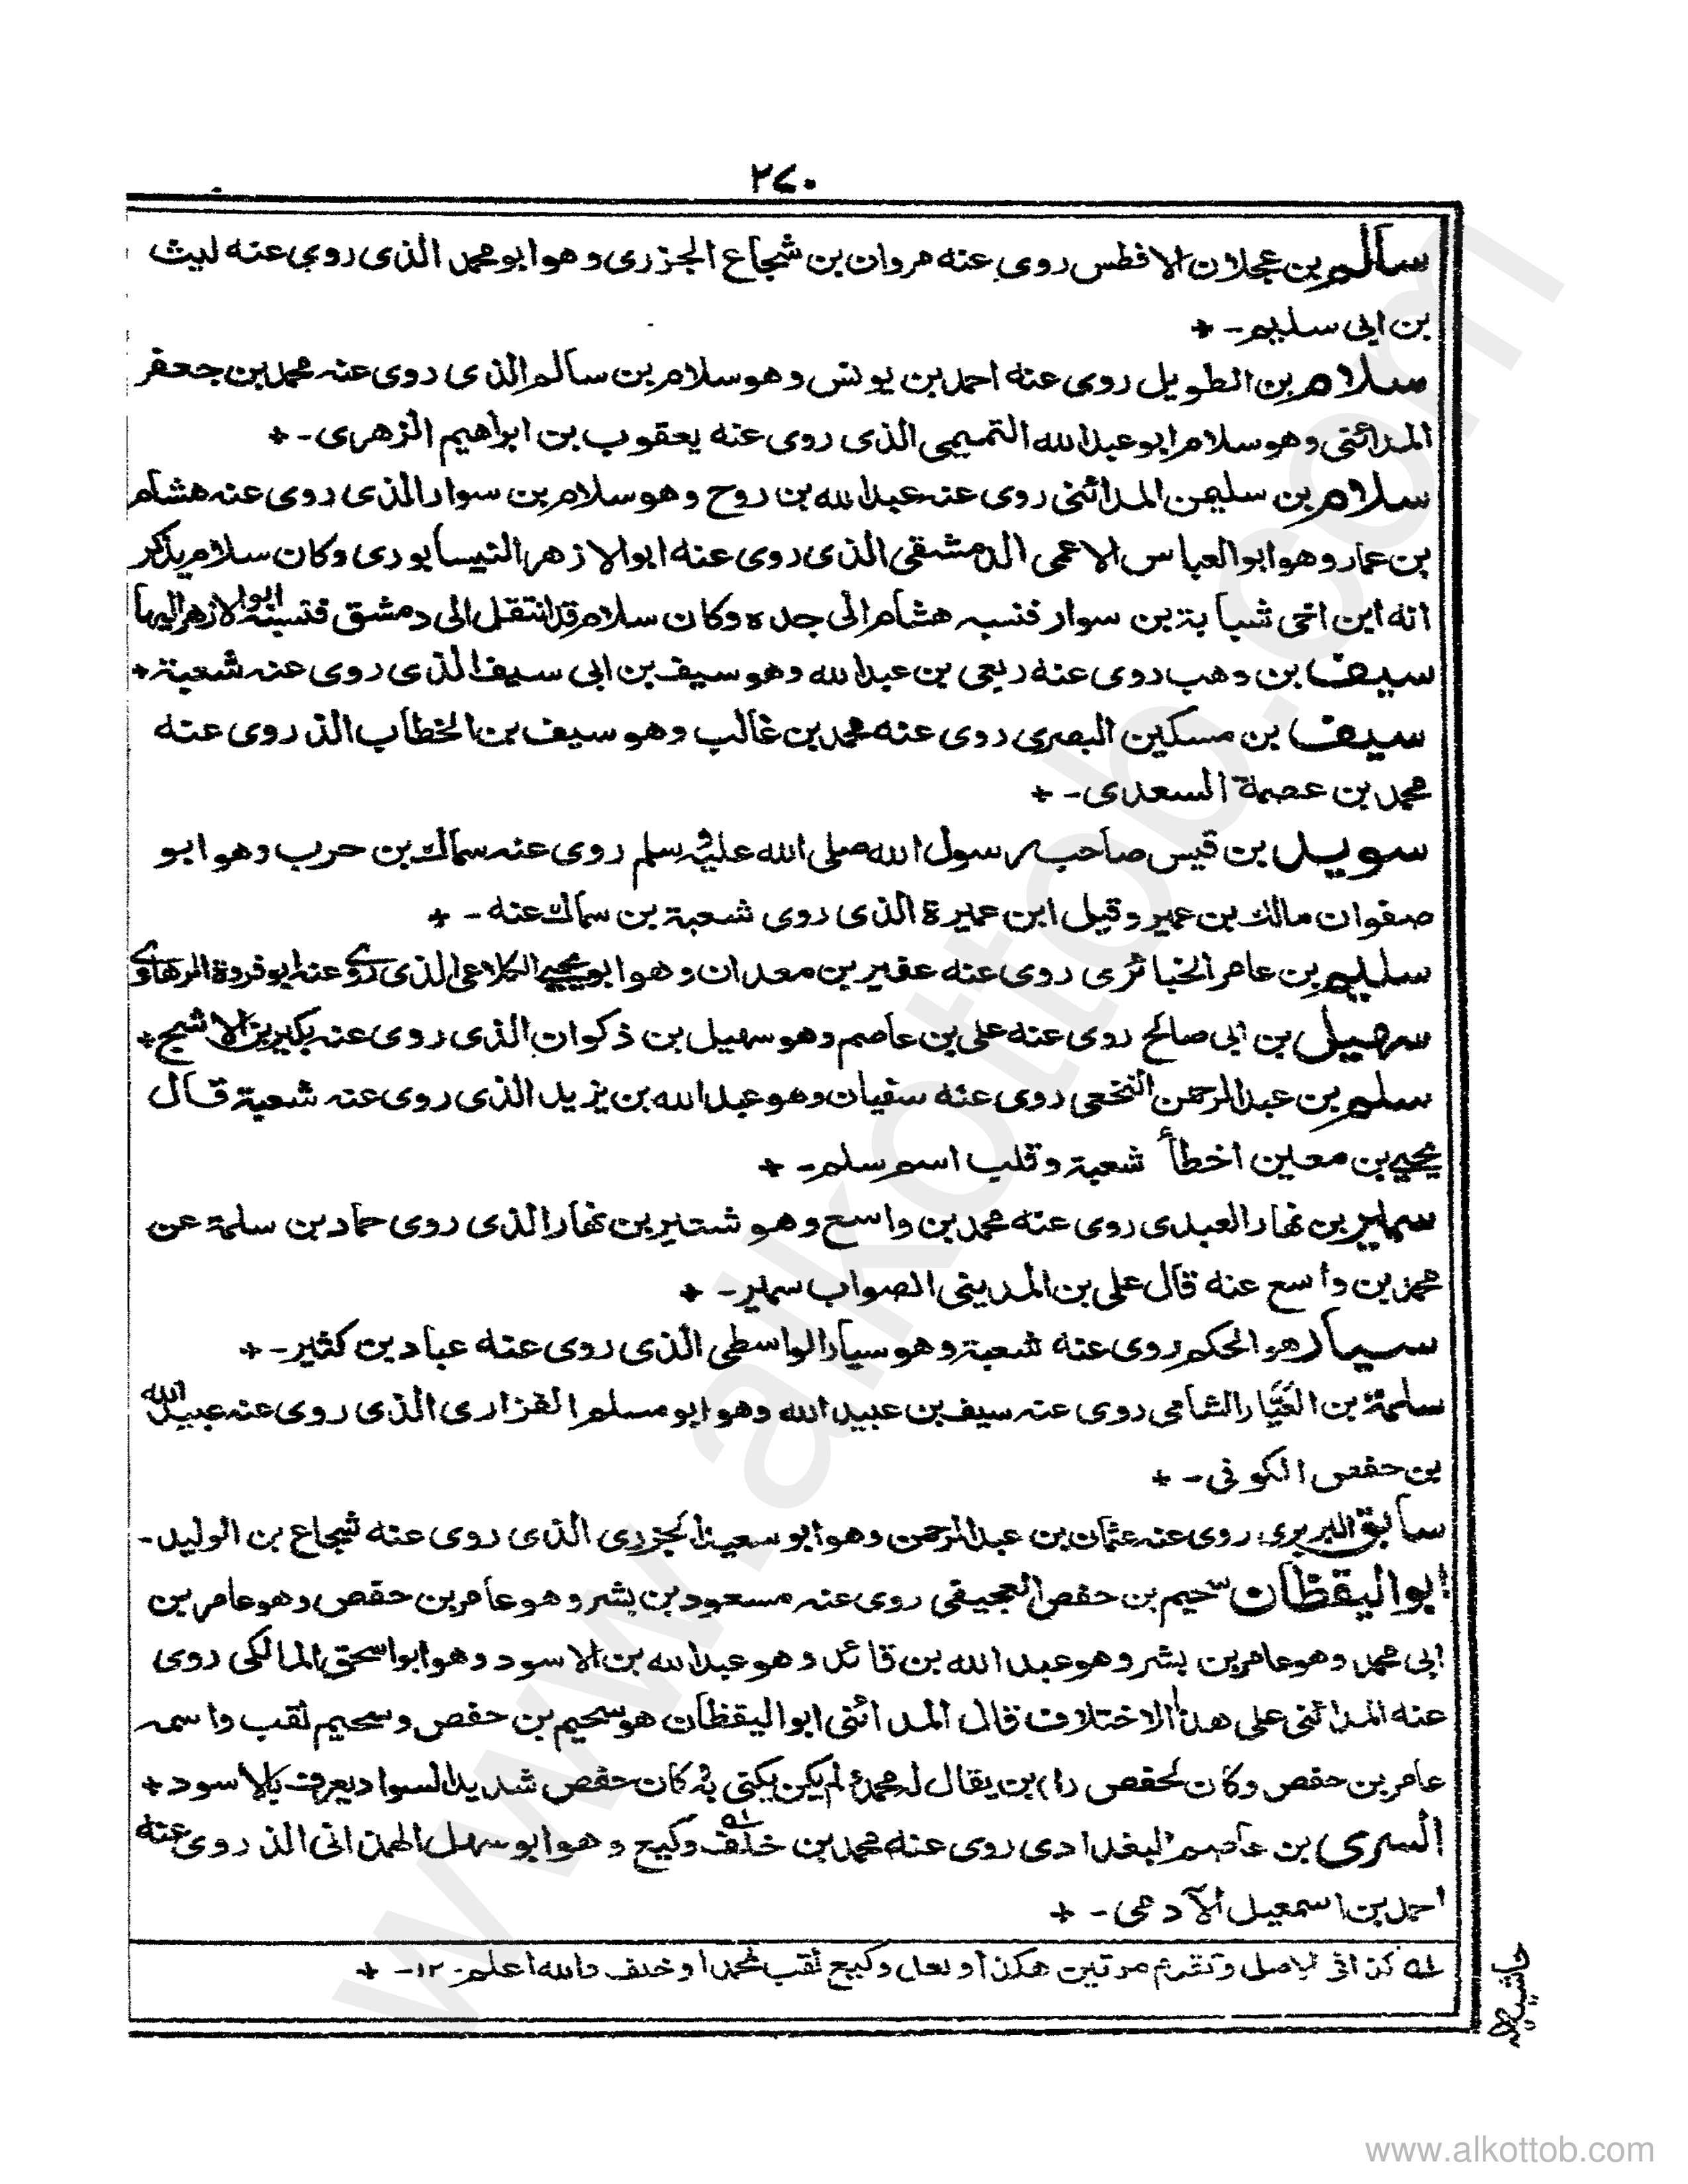 ٢٧٠
سالم بن عجلان الافطس روى عنه مروان بن شجاع الجزرى وهو ابو محمد الذى روى عنه ليث
بن ابى سليم - +
سلام بن الطويل روى عنه احمد بن يونس وهو سلام بن سالم الذى روى عنه محمد بن جعفر
المدائنى وهو سلام ابو عبد الله التميمى الذى روى عنه يعقوب بن ابراهيم الزهرى - +
سلام بن سليمن المدائنى روى عنه عبد الله بن روح وهو سلام بن سوار الذى روى عنه هشام
بن عمار وهو ابو العباس الاعمى الدمشقى الذى روى عنه ابو الازهر النيسابورى وكان سلام يذكر
انه ابن اخى شبابة بن سوار فنسبه هشام الى جده وكان سلام قد انتقل الى دمشق فنسبه ابو الازهر اليها
سيف بن وهب روى عنه ربعى بن عبد الله وهو سيف بن ابى سيف الذى روى عنه شعبة +
سيف بن مسكين البصرى روى عنه محمد بن غالب وهو سيف بن الخطاب الذ روى عنه
محمد بن عصمة السعدى - +
سويد بن قيس صاحب رسول الله صلى الله عليه وسلم روى عنه سماك بن حرب وهو ابو
صفوان مالك بن عمير وقيل ابن عميرة الذى روى شعبة بن سماك عنه - +
سليم بن عامر الخبائرى روى عنه عفير بن معدان وهو ابو يحيى الكلاعى الذى روى عنه ابو فروة الرهاوى
سهيل بن ابى صالح روى عنه على بن عاصم وهو سهيل بن ذكوان الذى روى عنه بكير بن الاشج +
سلم بن عبد الرحمن النخعى روى عنه سفيان وهو عبد الله بن يزيد الذى روى عنه شعبة قال
يحيى بن معين اخطأ شعبة وقلب اسم سلم - +
سمير بن نهار العبدى روى عنه محمد بن واسع وهو شتير بن نهار الذى روى حماد بن سلمة عن
محمد بن واسع عنه قال على بن المدينى الصواب سمير - +
سيار هو الحكم روى عنه شعبة وهو سيار الواسطى الذى روى عنه عباد بن كثير - +
سلمة بن العَيّار الشامى روى عنه سيف بن عبيد الله وهو ابو مسلم الفزارى الذى روى عنه عبيد الله
بن حفص الكوفى - +
سابق البربرى روى عنه عثمان بن عبد الرحمن وهو ابو سعيد الجزرى الذى روى عنه شجاع بن الوليد -
ابو اليقظان سحيم بن حفص العجيفى روى عنه مسعود بن بشر وهو عامر بن حفص وهو عامر بن
ابى محمد وهو عامر بن بشر وهو عبد الله بن قائد وهو عبد الله بن الاسود وهو ابو اسحق المالكى روى
عنه المدائنى على هذا الاختلاف قال المدائنى ابو اليقظان هو سحيم بن حفص وسحيم لقب واسمه
عامر بن حفص وكان لحفص (ا) بن يقال له محمد لم يكن يكنى به كان حفص شديد السواد يعرف بالاسود +
السرى بن عاصم البغدادى روى عنه محمد بن خلف وكيع وهو ابو سهل الهمدانى الذ روى عنه
احمد بن اسمعيل الآدمى - +
له كذا فى الاصل وتقدم مرتين هكذا ولعل وكيع لقب لمحمد او خلف والله اعلم - ١٢ - +
حاشيه
www.alkottob.com
www.alkottob.com